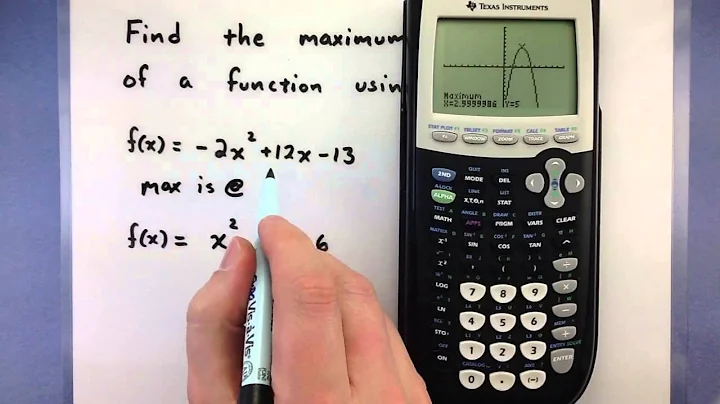 Find the maximum
of a function using
f(x) = -2x² +12x -13
max is @
f(x) = x² 6
TEXAS INSTRUMENTS
Maximum
X=2.9999986 Y=5
STAT PLOT F1 TBLSET F2 FORMAT F3 CALC F4 TABLE F5
Y= WINDOW ZOOM TRACE GRAPH
QUIT INS
2ND MODE DEL
A-LOCK LINK LIST
ALPHA X,T,Θ,n STAT
TEST A ANGLE B DRAW C DISTR
MATH APPS PRGM VARS CLEAR
MATRIX D SIN⁻¹ E COS⁻¹ F TAN⁻¹ G π H
x⁻¹ SIN COS TAN ^
x² , ( ) ÷
LOG 7 8 9 ×
LN 4 5 6 −
STO▸ 1 2 3 +
CATALOG
ON 0 . (−) ENTER